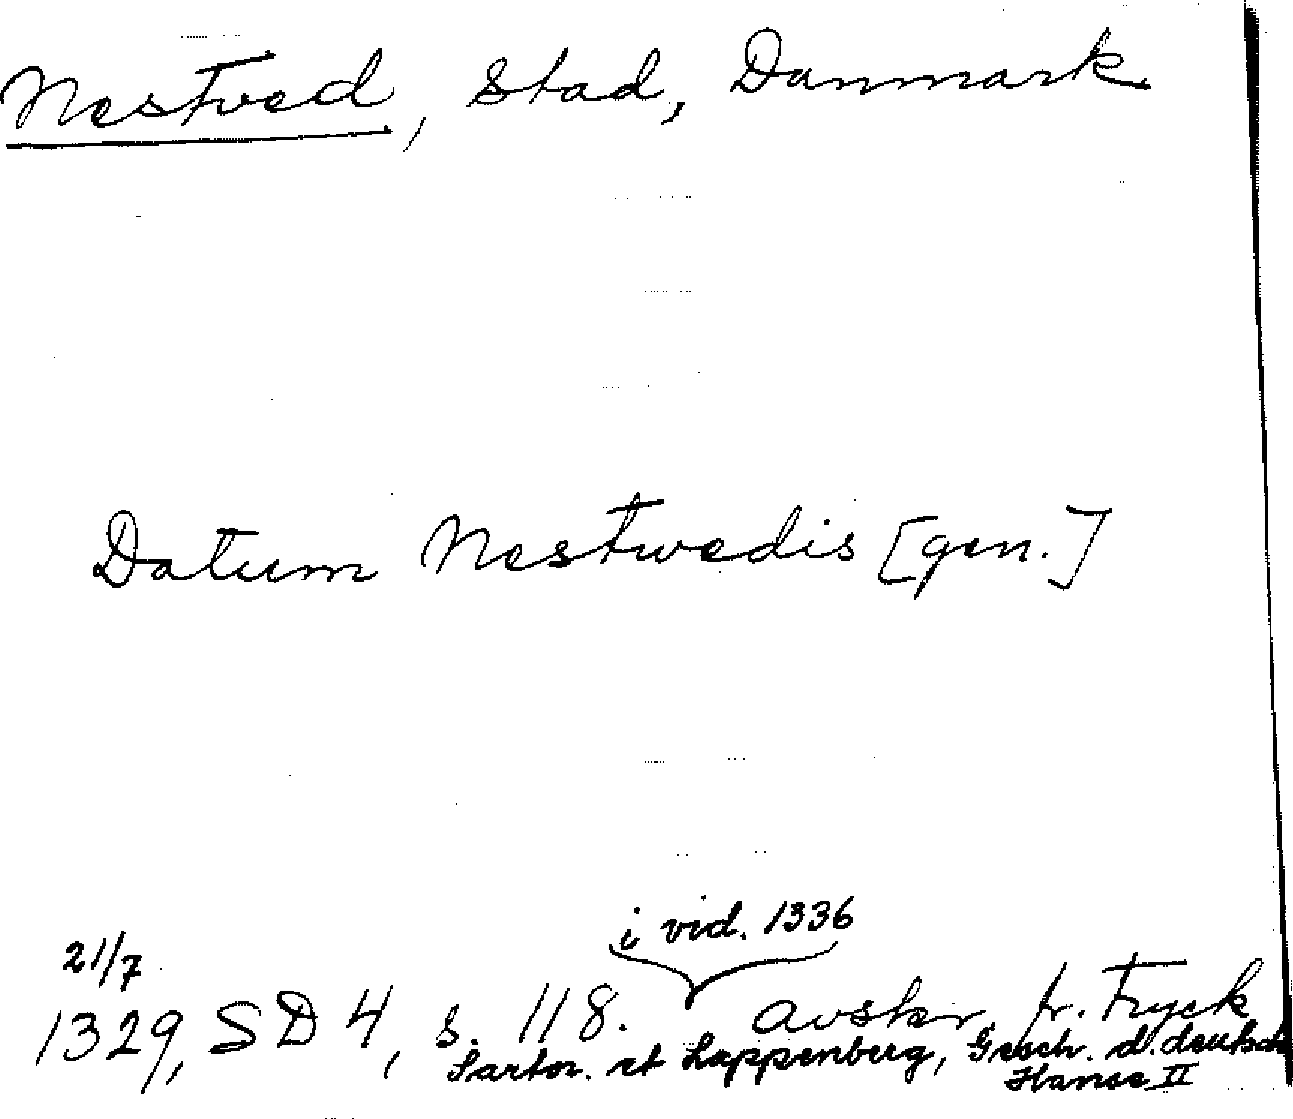 Nestved, Stad, Danmark
Datum Nestwedis [gen.]
i vid. 1336
21/7
1329, SD 4, s. 118. avskr. fr. Tryck
Sartor. et Lappenberg, Gesch. d. deutsch
Hanse II